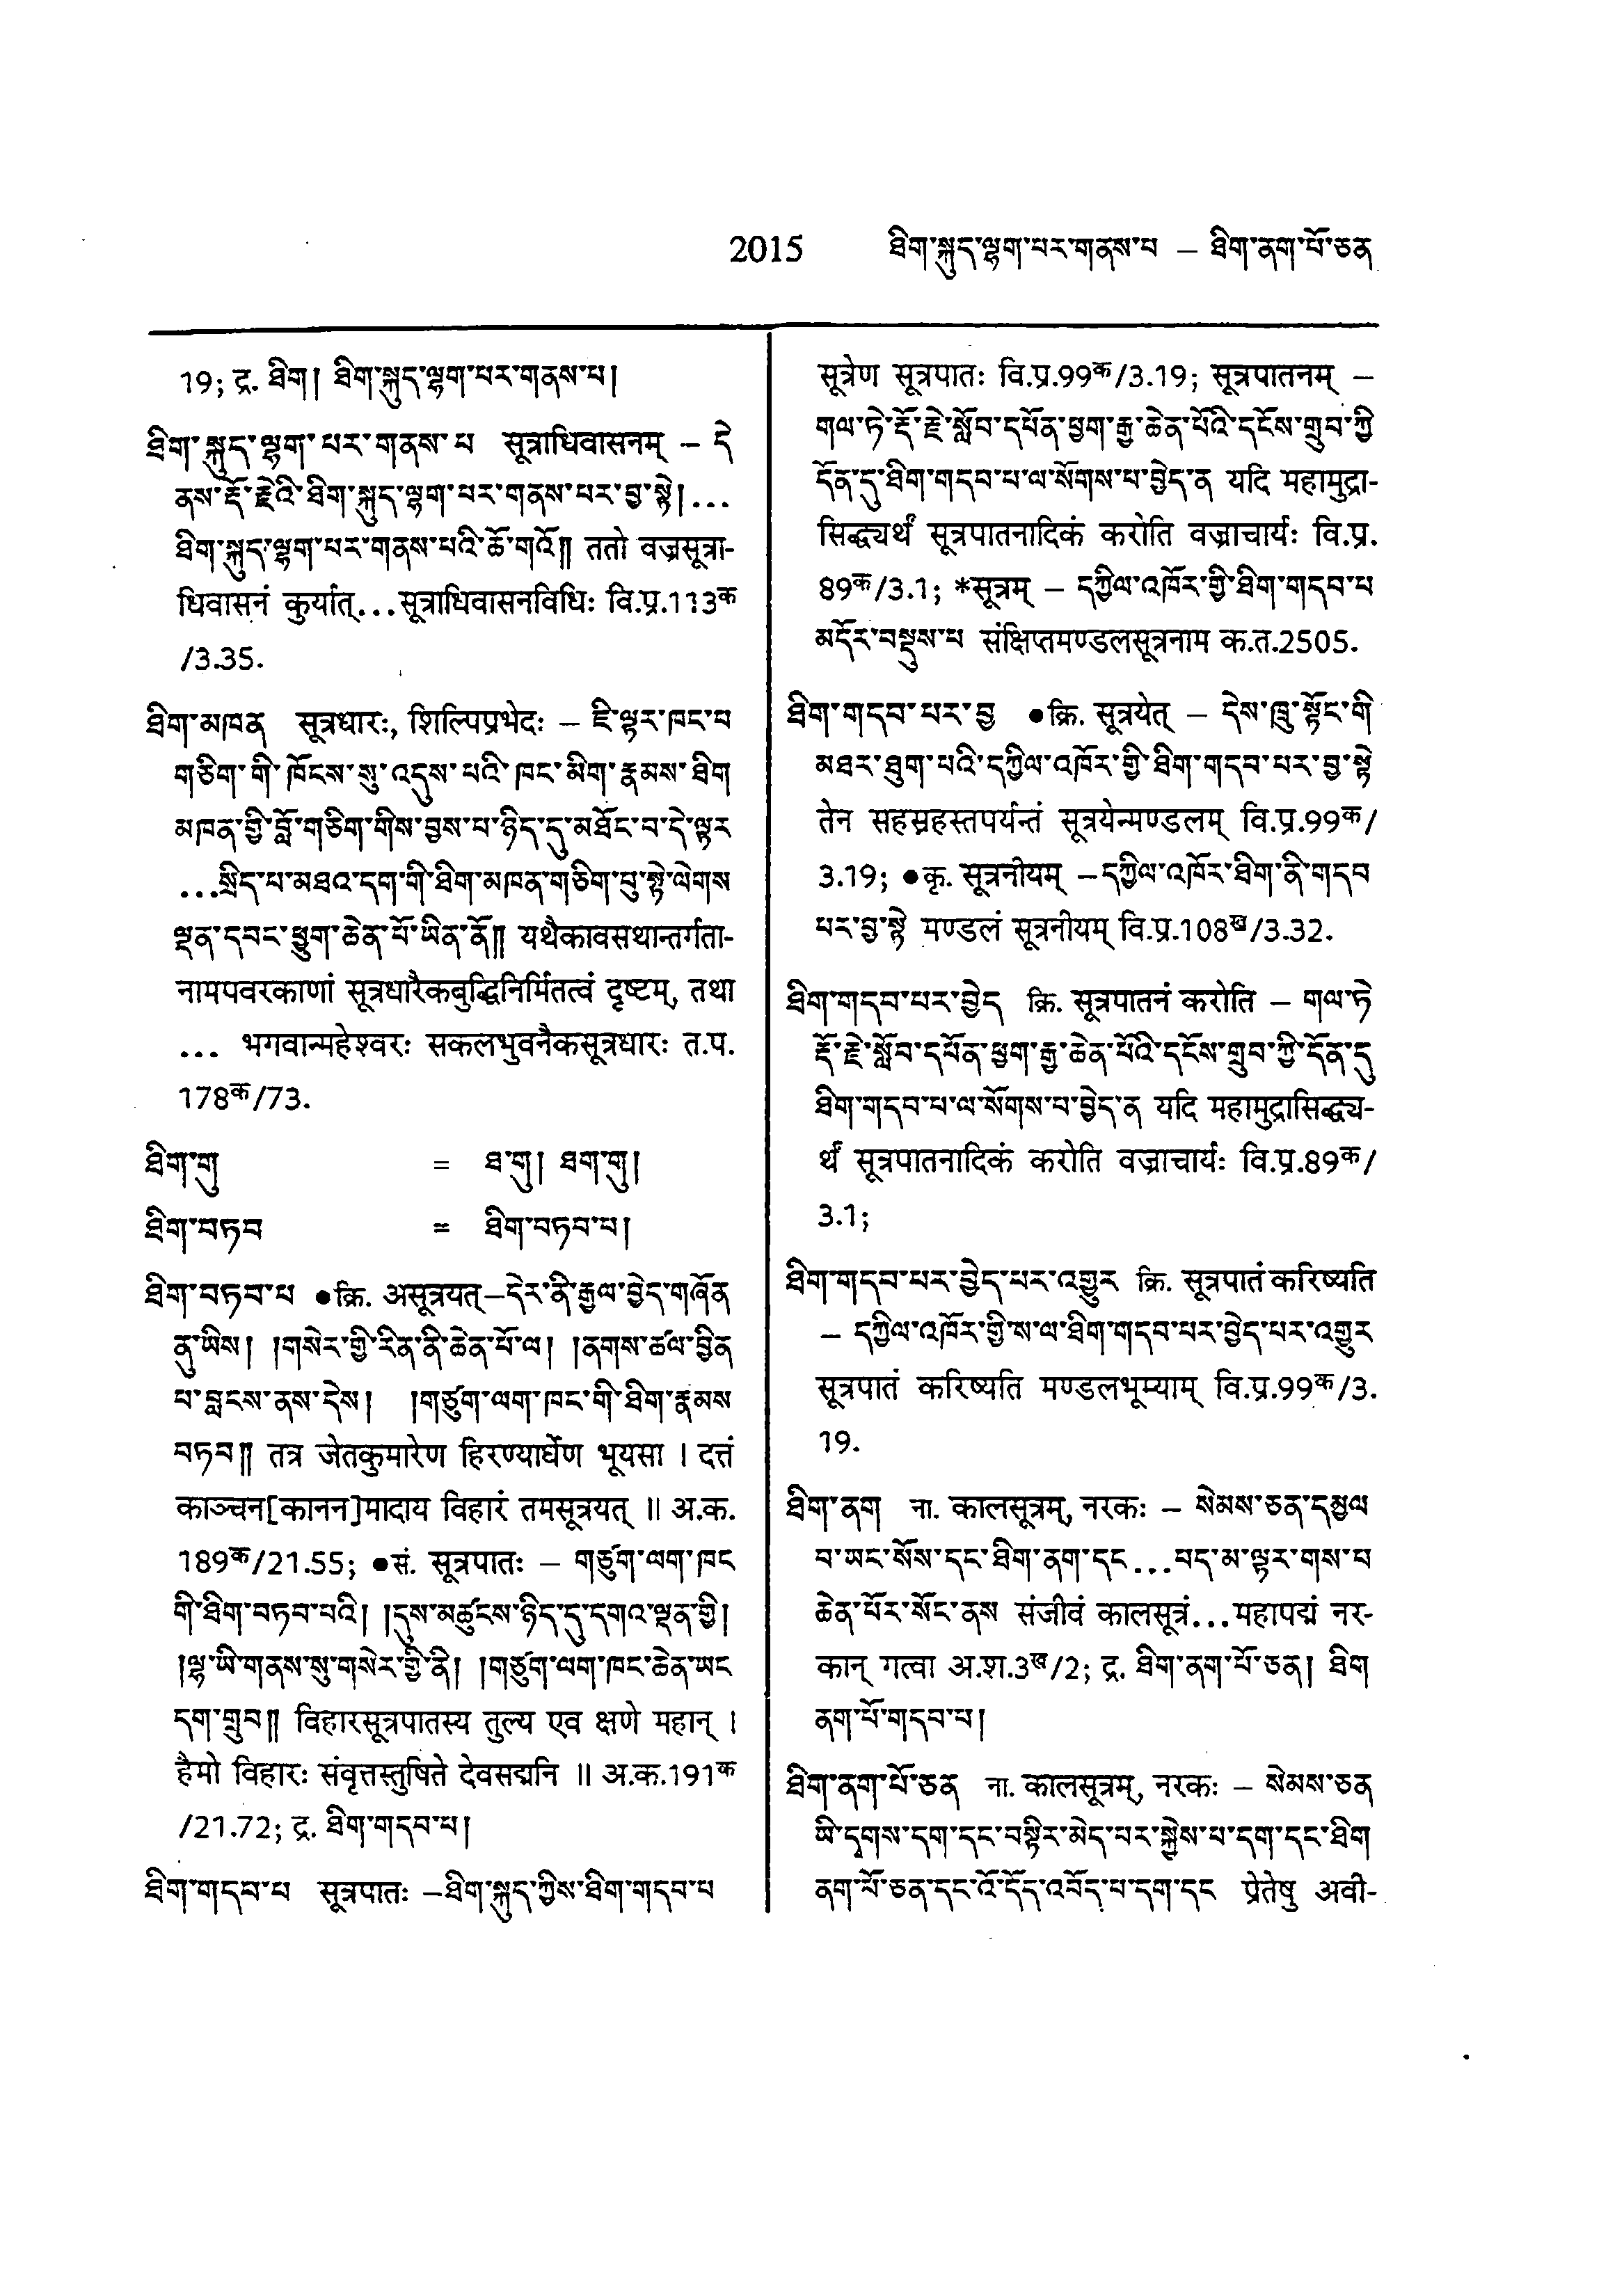 2015 ཐིག་སྐུད་ལྷག་པར་གནས་པ – ཐིག་ནག་པོ་ཅན
19; द्र. ཐིག། ཐིག་སྐུད་ལྷག་པར་གནས་པ།
ཐིག་སྐུད་ལྷག་པར་གནས་པ सूत्राधिवासनम् – དེ
ནས་རྡོ་རྗེའི་ཐིག་སྐུད་ལྷག་པར་གནས་པར་བྱ་སྟེ།...
ཐིག་སྐུད་ལྷག་པར་གནས་པའི་ཆོ་གའོ༎ ततो वज्रसूत्रा-
धिवासनं कुर्यात्...सूत्राधिवासनविधिः वि.प्र.113क
/3.35.
ཐིག་མཁན सूत्रधारः, शिल्पिप्रभेदः – ཇི་ལྟར་ཁང་པ
གཅིག་གི་ཁོངས་སུ་འདུས་པའི་ཁང་མིག་རྣམས་ཐིག
མཁན་གྱི་བློ་གཅིག་གིས་བྱས་པ་ཉིད་དུ་མཐོང་བ་དེ་ལྟར
...སྲིད་པ་མཐའ་དག་གི་ཐིག་མཁན་གཅིག་པུ་སྟེ་ལེགས
ལྡན་དབང་ཕྱུག་ཆེན་པོ་ཡིན་ནོ༎ यथैकावसथान्तर्गता-
नामपवरकाणां सूत्रधारैकबुद्धिनिर्मितत्वं दृष्टम्, तथा
... भगवान्महेश्वरः सकलभुवनैकसूत्रधारः त.प.
178क/73.
ཐིག་གུ = ཐ་གུ། ཐག་གུ།
ཐིག་བཏབ = ཐིག་བཏབ་པ།
ཐིག་བཏབ་པ ●क्रि. असूत्रयत्–དེར་ནི་རྒྱལ་བྱེད་གཞོན
ནུ་ཡིས། །གསེར་གྱི་རིན་ནི་ཆེན་པོ་ལ། །ནགས་ཚལ་བྱིན
པ་བླངས་ནས་དེས། །གཙུག་ལག་ཁང་གི་ཐིག་རྣམས
བཏབ༎ तत्र जेतकुमारेण हिरण्यार्घेण भूयसा । दत्तं
काञ्चन[कानन]मादाय विहारं तमसूत्रयत् ॥ अ.क.
189क/21.55; ●सं. सूत्रपातः – གཙུག་ལག་ཁང
གི་ཐིག་བཏབ་པའི། །དུས་མཚུངས་ཉིད་དུ་དགའ་ལྡན་གྱི།
།ལྷ་ཡི་གནས་སུ་གསེར་གྱི་ནི། །གཙུག་ལག་ཁང་ཆེན་ཡང
དག་གྲུབ༎ विहारसूत्रपातस्य तुल्य एव क्षणे महान् ।
हैमो विहारः संवृत्तस्तुषिते देवसद्मनि ॥ अ.क.191क
/21.72; द्र. ཐིག་གདབ་པ།
ཐིག་གདབ་པ सूत्रपातः –ཐིག་སྐུད་ཀྱིས་ཐིག་གདབ་པ
सूत्रेण सूत्रपातः वि.प्र.99क/3.19; सूत्रपातनम् –
གལ་ཏེ་རྡོ་རྗེ་སློབ་དཔོན་ཕྱག་རྒྱ་ཆེན་པོའི་དངོས་གྲུབ་ཀྱི
དོན་དུ་ཐིག་གདབ་པ་ལ་སོགས་པ་བྱེད་ན यदि महामुद्रा-
सिद्ध्यर्थं सूत्रपातनादिकं करोति वज्राचार्यः वि.प्र.
89क/3.1; *सूत्रम् – དཀྱིལ་འཁོར་གྱི་ཐིག་གདབ་པ
མདོར་བསྡུས་པ संक्षिप्तमण्डलसूत्रनाम क.त.2505.
ཐིག་གདབ་པར་བྱ ●क्रि. सूत्रयेत् – དེས་ཁྲུ་སྟོང་གི
མཐར་ཐུག་པའི་དཀྱིལ་འཁོར་གྱི་ཐིག་གདབ་པར་བྱ་སྟེ
तेन सहस्रहस्तपर्यन्तं सूत्रयेन्मण्डलम् वि.प्र.99क/
3.19; ●कृ. सूत्रनीयम् –དཀྱིལ་འཁོར་ཐིག་ནི་གདབ
པར་བྱ་སྟེ मण्डलं सूत्रनीयम् वि.प्र.108ख/3.32.
ཐིག་གདབ་པར་བྱེད क्रि. सूत्रपातनं करोति – གལ་ཏེ
རྡོ་རྗེ་སློབ་དཔོན་ཕྱག་རྒྱ་ཆེན་པོའི་དངོས་གྲུབ་ཀྱི་དོན་དུ
ཐིག་གདབ་པ་ལ་སོགས་པ་བྱེད་ན यदि महामुद्रासिद्ध्य-
र्थं सूत्रपातनादिकं करोति वज्राचार्यः वि.प्र.89क/
3.1;
ཐིག་གདབ་པར་བྱེད་པར་འགྱུར क्रि. सूत्रपातं करिष्यति
– དཀྱིལ་འཁོར་གྱི་ས་ལ་ཐིག་གདབ་པར་བྱེད་པར་འགྱུར
सूत्रपातं करिष्यति मण्डलभूम्याम् वि.प्र.99क/3.
19.
ཐིག་ནག ना. कालसूत्रम्, नरकः – སེམས་ཅན་དམྱལ
བ་ཡང་སོས་དང་ཐིག་ནག་དང...པད་མ་ལྟར་གས་པ
ཆེན་པོར་སོང་ནས संजीवं कालसूत्रं...महापद्मं नर-
कान् गत्वा अ.श.3ख/2; द्र. ཐིག་ནག་པོ་ཅན། ཐིག
ནག་པོ་གདབ་པ།
ཐིག་ནག་པོ་ཅན ना. कालसूत्रम्, नरकः – སེམས་ཅན
ཡི་དྭགས་དག་དང་བསྟིར་མེད་པར་སྐྱེས་པ་དག་དང་ཐིག
ནག་པོ་ཅན་དང་འོ་དོད་འབོད་པ་དག་དང प्रेतेषु अवी-